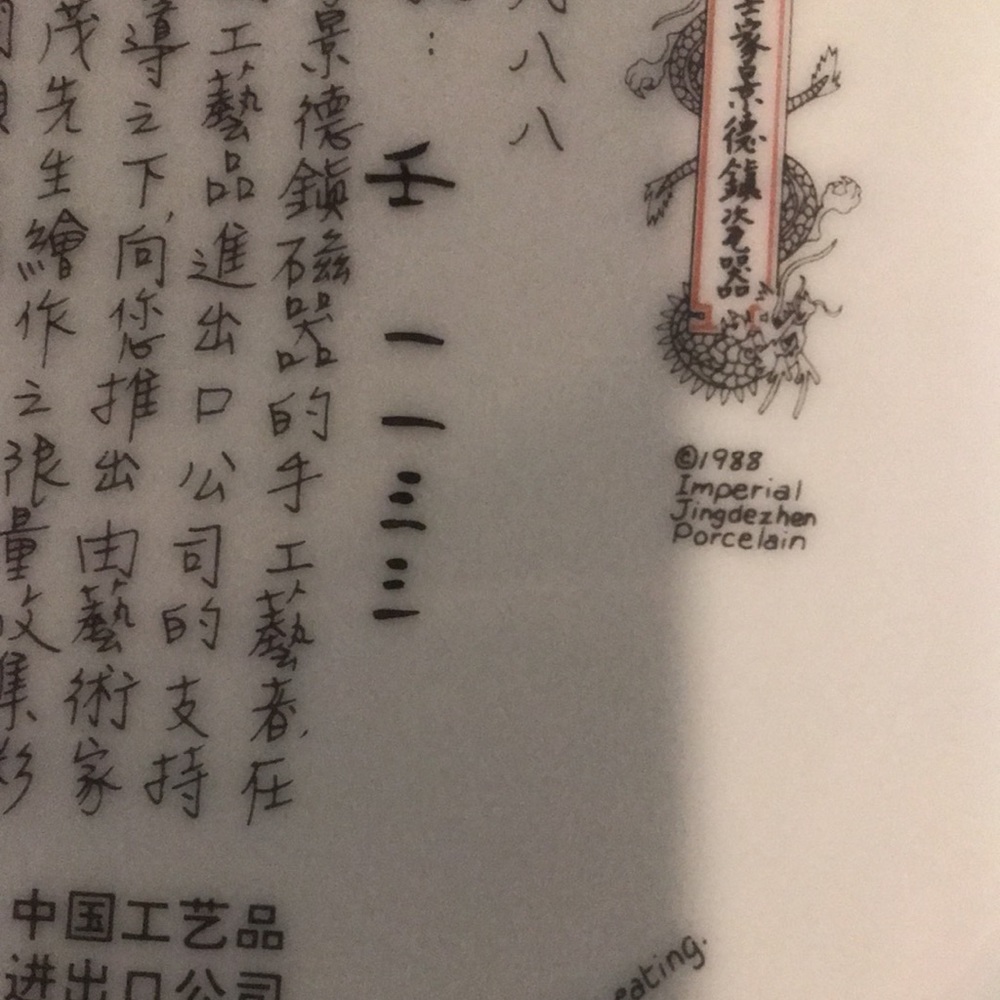 家景德鎮瓷器
©1988
Imperial
Jingdezhen
Porcelain
八八
：壬一一三三
景德鎮磁器的手工藝者,在
工藝品進出口公司的支持
導之下,向您推出由藝術家
茂先生繪作之限量收集彩
中国工艺品
进出口公司
eating.